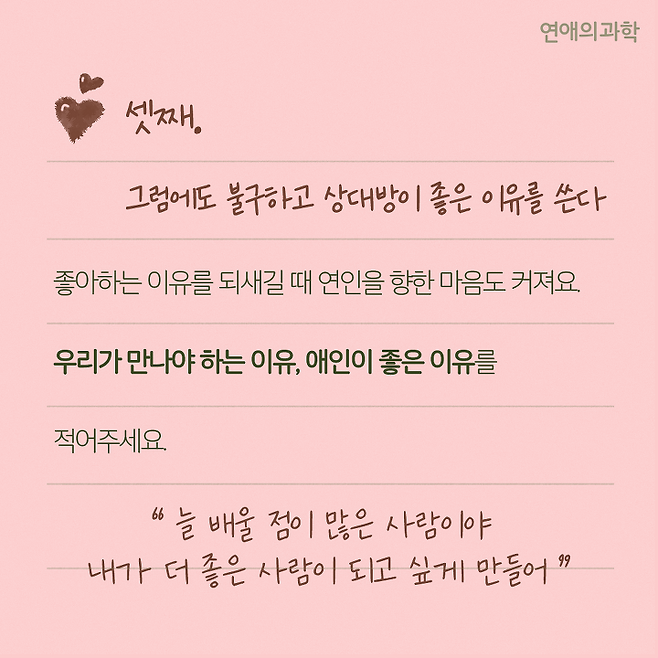 연애의과학
셋째.
그럼에도 불구하고 상대방이 좋은 이유를 쓴다
좋아하는 이유를 되새길 때 연인을 향한 마음도 커져요.
우리가 만나야 하는 이유, 애인이 좋은 이유를
적어주세요.
“ 늘 배울 점이 많은 사람이야
내가 더 좋은 사람이 되고 싶게 만들어 ”